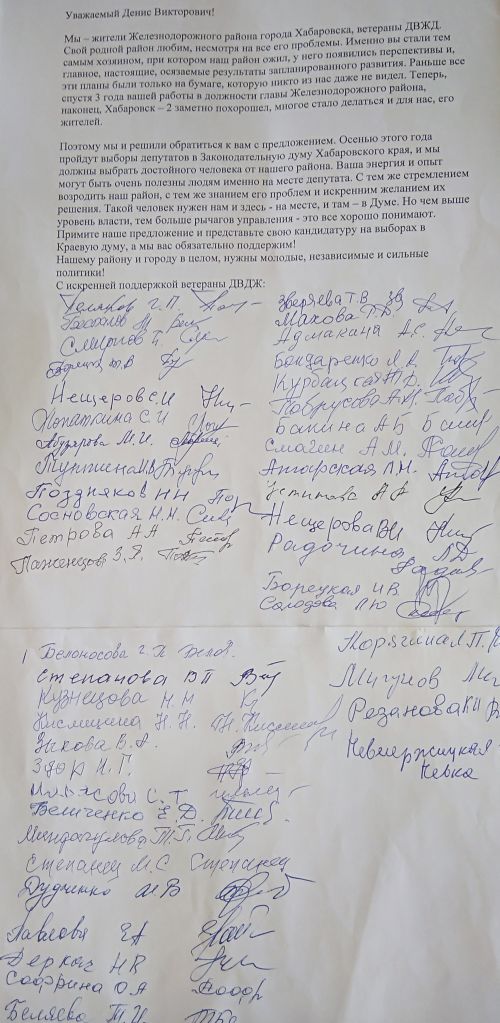 Уважаемый Денис Викторович!
Мы – жители Железнодорожного района города Хабаровска, ветераны ДВЖД.
Свой родной район любим, несмотря на все его проблемы. Именно вы стали тем
самым хозяином, при котором наш район ожил, у него появились перспективы и,
главное, настоящие, осязаемые результаты запланированного развития. Раньше все
эти планы были только на бумаге, которую никто из нас даже не видел. Теперь,
спустя 3 года вашей работы в должности главы Железнодорожного района,
наконец, Хабаровск – 2 заметно похорошел, многое стало делаться и для нас, его
жителей.
Поэтому мы и решили обратиться к вам с предложением. Осенью этого года
пройдут выборы депутатов в Законодательную думу Хабаровского края, и мы
должны выбрать достойного человека от нашего района. Ваша энергия и опыт
могут быть очень полезны людям именно на месте депутата. С тем же стремлением
возродить наш район, с тем же знанием его проблем и искренним желанием их
решения. Такой человек нужен нам и здесь - на месте, и там – в Думе. Но чем выше
уровень власти, тем больше рычагов управления - это все хорошо понимают.
Примите наше предложение и представьте свою кандидатуру на выборах в
Краевую думу, а мы вас обязательно поддержим!
Нашему району и городу в целом, нужны молодые, независимые и сильные
политики!
С искренней поддержкой ветераны ДВДЖ:
Г.П.
Смирнов
Нещеров С.И
Лопаткина С.И
М.И.
Поздняков Н Н
Сосновская Н.Н.
Петрова А А
Паженцов З.Я.
Зверяева Т.В
Махова
Адмакина А.С.
Бондаренко Л.А.
Курбацкая
Бакина А В
Смагин А.М.
Ангарская Л.Н.
Устинова А А
Нещерова В И
Радочина Л Д
Борецкая И В
Солодова Л Ю
Белоносова Г.П. Белон.
Степанова В П
Кузнецова Н.Н
Кисмицина Н.Н.
Зыкова В.А.
Здор И.Г.
С.Т.
Величенко Е.Д.
Степанец М.С Степанец
Дудченко И В
Павловя
Деркач Н К
Софрина О А
Беляева Т.И.
Корягина Л.П.
Мигунов
Резанова К И
Невмержицкая
Невка